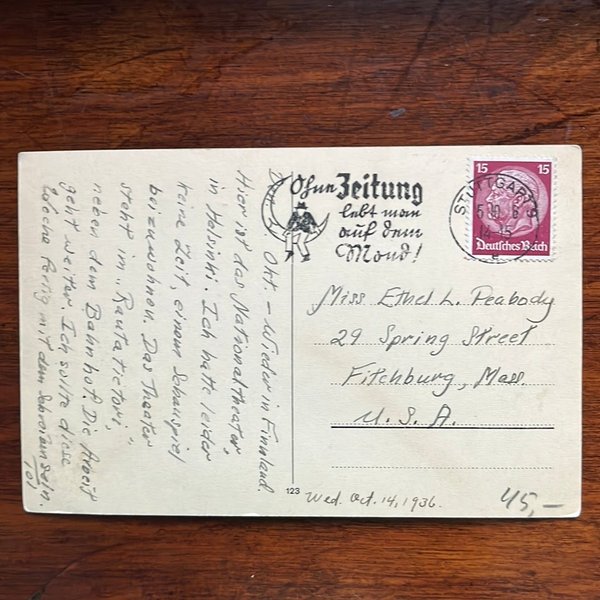 Okt. – Wieder in Finnland.
Hier ist das Nationaltheater,
in Helsinki. Ich hatte leider
keine Zeit, einem Schauspiel
beizuwohnen. Das Theater
steht im „Rautatietori",
neben dem Bahnhof. Die Arbeit
geht weiter. Ich sollte diese
Woche fertig mit dem Schreiben sein.
101
Ohne Zeitung
lebt man
auf dem
Mond!
STUTTGART 9
14-15
15 15
Deutsches Reich
Miss Ethel L. Peabody
29 Spring Street
Fitchburg, Mass.
U. S. A.
123
Wed. Oct. 14, 1936.
45,–